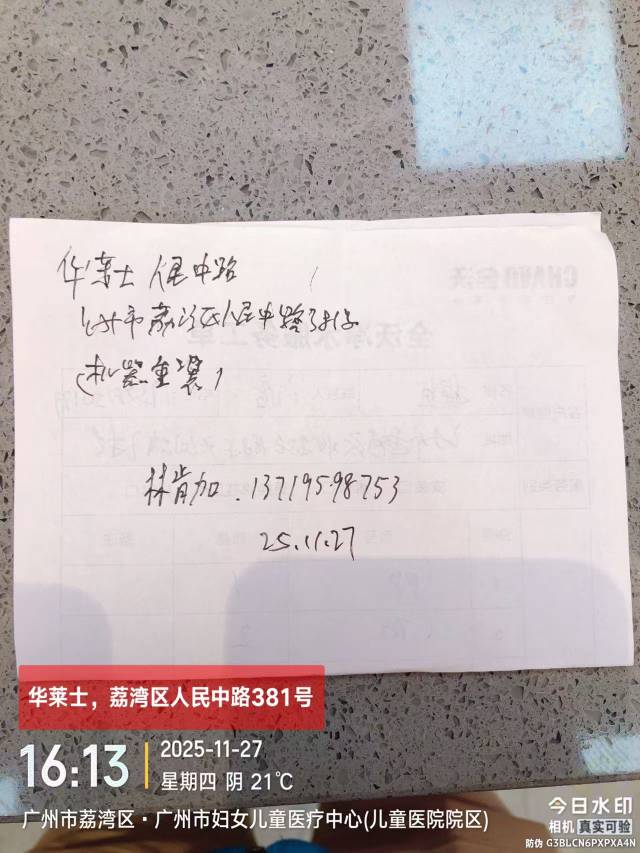 华莱士 人民中路
广州市荔湾区人民中路381号
(机器重装)
林肯加. 13719598753
25.11.27
华莱士，荔湾区人民中路381号
16:13
2025-11-27
星期四 阴 21℃
广州市荔湾区·广州市妇女儿童医疗中心(儿童医院院区)
今日水印
相机 真实可验
防伪 G3BLCN6PXPXA4N